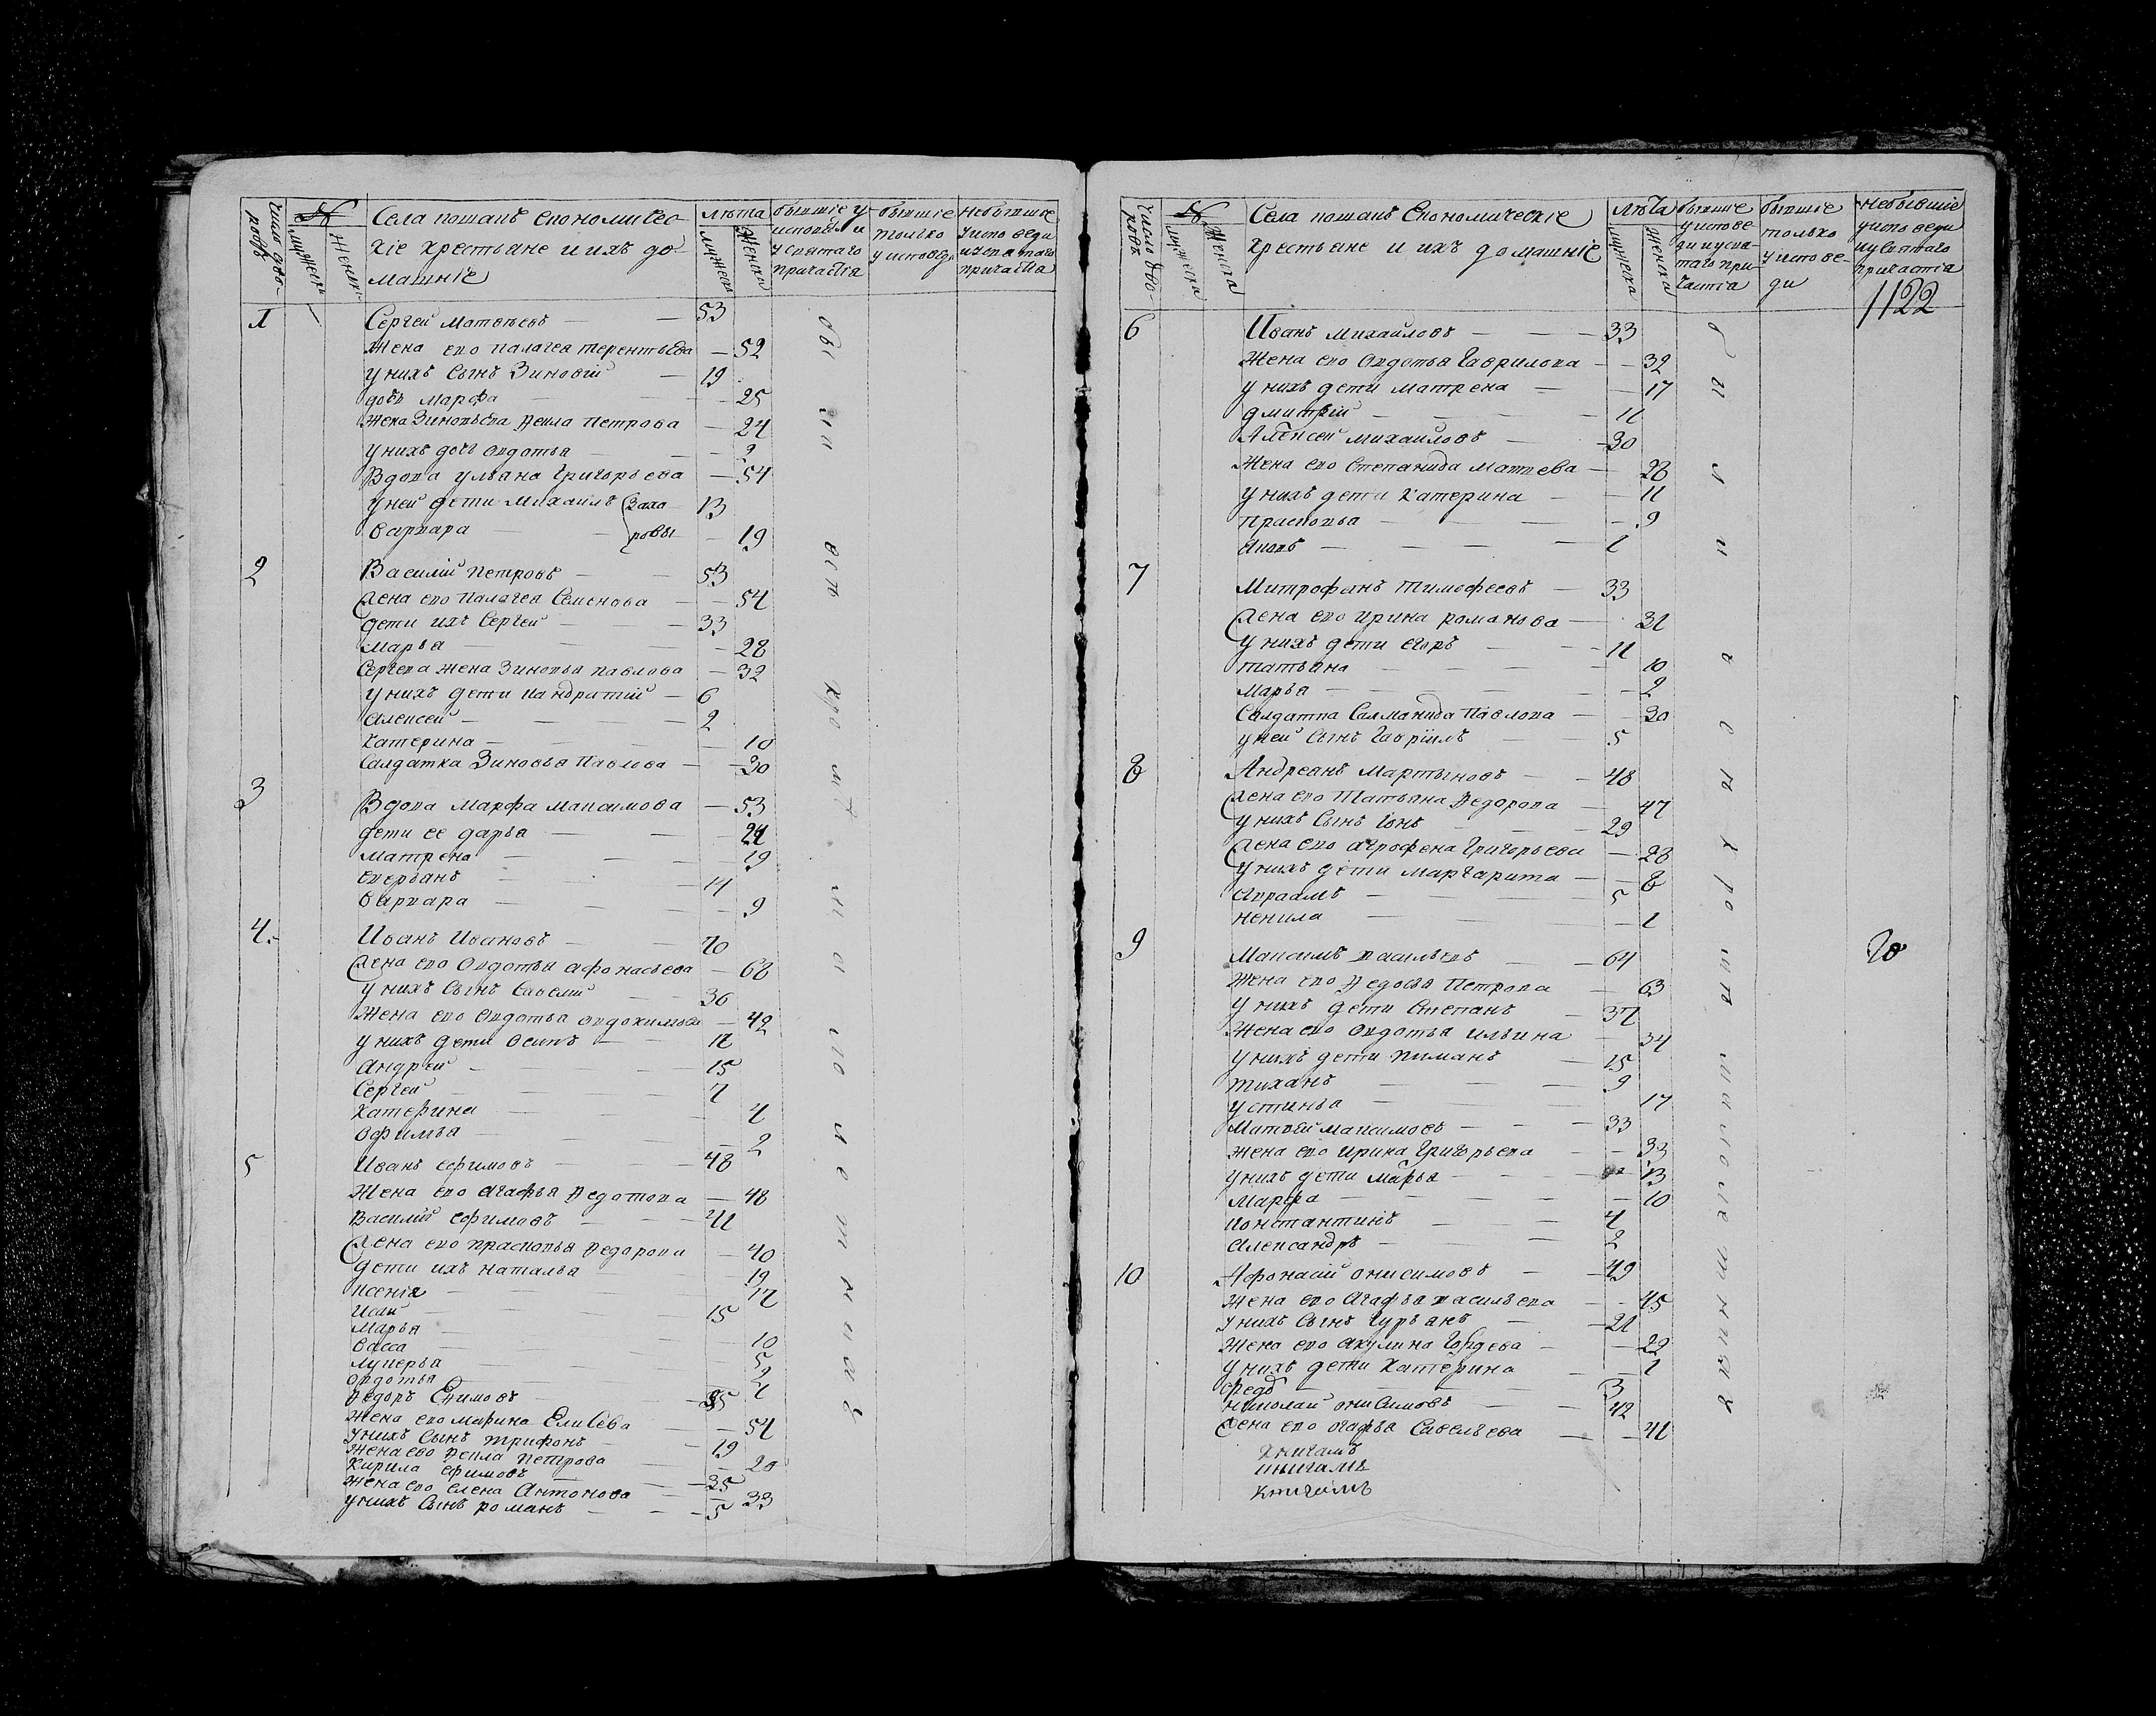 Число дво-
ровъ
№
мужеск
женск
Села пошапъ Економичес-
кіе крестьяне и ихъ до-
машніе
лѣта
мужеск
женска
бывшіе у
исповѣди и
у святаго
причастія
бывшіе
только
у исповѣди
небывшіе
у исповеди
и святаго
причастія
1 Сергеи Матвѣевъ — 53
Жена ево Палагея Терентьева — 52
у нихъ сынъ Зиновіи — 19
дочь Марфа — 25
Жена Зиновьева Ѳекла Петрова — 24
у нихъ дочь Овдотья — 2
Вдова Ульяна Григорьева — 54
у неи дети Михаилъ Заха 13
Варвара — ровы — 19
2 Василіи Петровъ — 53
Жена ево Палагея Семенова — 54
дети ихъ Сергеи — 33
Марья — 28
Сергева жена Зиновья Павлова — 32
у нихъ дети Кандратіи — 6
Алексеи — 2
Катерина — 10
Салдатка Зиновья Павлова — 30
3 Вдова Марфа Максимова — 53
дети ее Дарья — 24
Матрена — 19
Аверьянъ — 14
Варвара — 9
4. Иванъ Ивановъ — 70
Жена ево Овдотья Афонасьева — 68
у нихъ сынъ Савеліи 36
Жена ево Овдотья Овдокимова — 42
у нихъ дети Осипъ — 17
Андреи — 15
Сергеи — 7
Катерина — 4
Офимья — 2
5 Иванъ Ефимовъ — 48
Жена ево Агафья Ѳедотова — 48
Василіи Ефимовъ — 41
Жена ево Прасковья Ѳедорова — 40
дети ихъ Наталья — 19
Ксенія — 17
Исаи — 15
Марья — 10
Васса — 5
Лукерья — 2
Овдотья — 1
Ѳедоръ Ефимовъ — 55
Жена ево Марина Елисева — 54
у нихъ сынъ Трифонъ — 19
Жена ево Ѳекла Петрова — 20
Кирила Ефимовъ — 35
Жена ево Елена Антонова — 33
у нихъ сынъ Романъ — 5
Число дво-
ровъ
№
мужеска
женска
Села пошапъ Економическіе
крестьяне и ихъ домашніе
лѣта
мужеска
женска
бывшіе
у испове-
ди и свя-
таго при-
частія
бывшіе
только
у испове-
ди
небывшіе
у исповеди
и святаго
причастія
1122
6 Иванъ Михаиловъ — 33
Жена ево Овдотья Гаврилова — 32
у нихъ дети Матрена — 17
Дмитріи — 11
Алексеи Михаиловъ — 30
Жена ево Степанида Матвева — 28
у нихъ дети Катерина — 11
Прасковья — 9
Яковъ — 1
7 Митрофанъ Тимофеевъ — 33
Жена ево Ирина Романова — 31
у нихъ дети Егоръ — 11
Татьяна — 10
Марья — 2
Салдатка Салманида Павлова — 30
у неи сынъ Гавріилъ — 5
8 Андреанъ Мартыновъ — 48
Жена ево Татьяна Ѳедорова — 47
у нихъ сынъ Іонъ — 29
Жена ево Агрофена Григорьева — 28
у нихъ дети Маргарита — 8
Авраамъ — 5
Ненила — 1
9 Максимъ Васильевъ — 64
Жена ево Ѳедосья Петрова — 63
у нихъ дети Степанъ — 37
Жена ево Овдотья Ильина — 34
у нихъ дети Пиманъ — 15
Тиханъ — 9
Устинья — 17
Матвеи Максимовъ — 33
Жена ево Ирина Григорьева — 33
у нихъ дети Марья — 13
Марфа — 10
Константинъ — 4
Александръ — 2
10 Афонасіи Онисимовъ — 49
Жена ево Агафья Васильева — 45
у нихъ сынъ Гурьянъ — 21
Жена ево Акулина Гордева — 22
у нихъ дети Катерина — 1
3
Николаи Онисимовъ — 42
Жена ево Агафья Савельева — 41
книгамъ
книгамъ
книгамъ